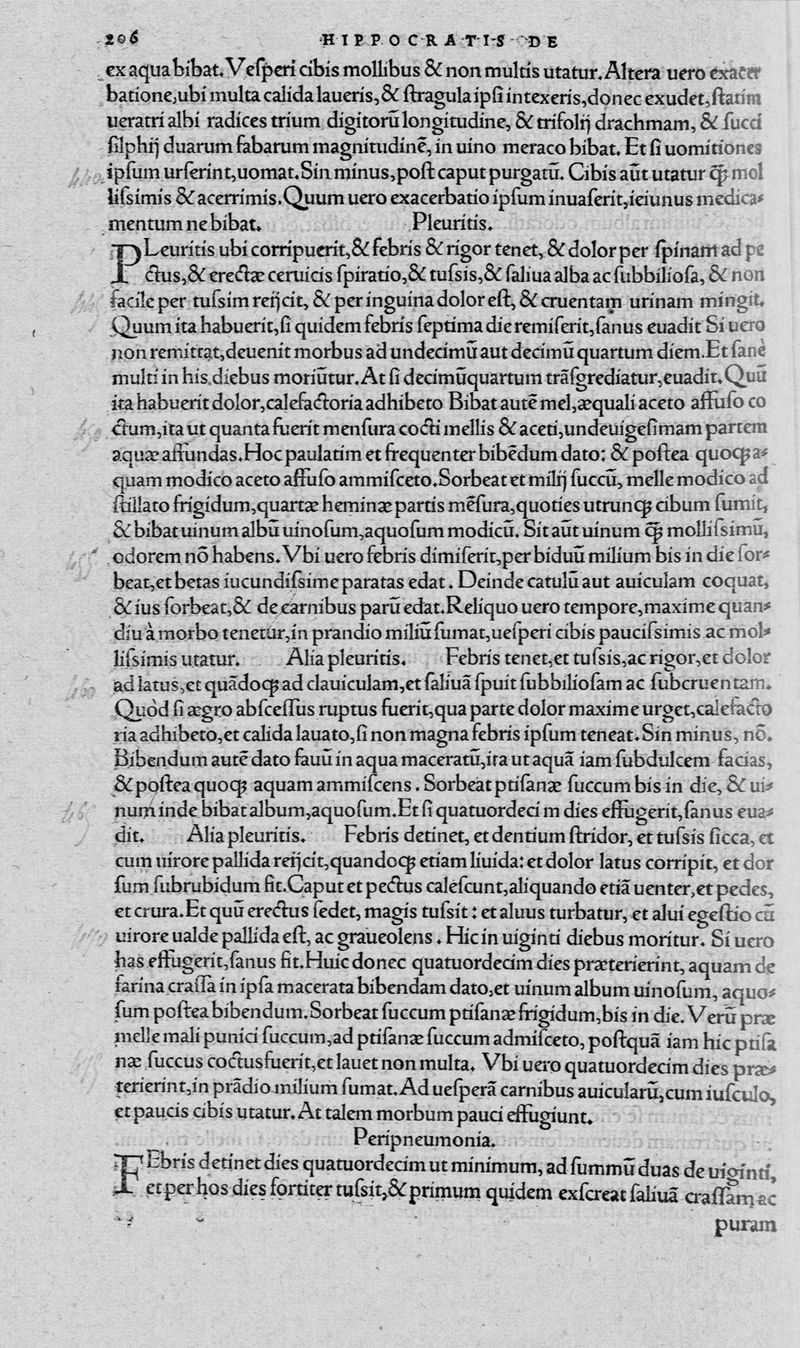 206 HIPPOCRATIS DE
ex aqua bibat. Veſperi cibis mollibus & non multis utatur. Altera uero exacer
batione, ubi multa calida laueris, & ſtragula ipſi intexeris, donec exudet, ſtatim
ueratri albi radices trium digitorū longitudine, & trifolij drachmam, & ſucci
ſilphij duarum fabarum magnitudinē, in uino meraco bibat. Et ſi uomitiones
ipſum urſerint, uomat. Sin minus, poſt caput purgatū. Cibis aūt utatur q̄ꝫ mol
liſsimis & acerrimis. Quum uero exacerbatio ipſum inuaſerit, ieiunus medica-
mentum ne bibat. Pleuritis.
PLeuritis ubi corripuerit, & febris & rigor tenet, & dolor per ſpinam ad pe
ctus, & erectæ ceruicis ſpiratio, & tuſsis, & ſaliua alba ac ſubbilioſa, & non
facile per tuſsim reijcit, & per inguina dolor eſt, & cruentam urinam mingit.
Quum ita habuerit, ſi quidem febris ſeptima die remiſerit, ſanus euadit Si uero
non remittat, deuenit morbus ad undecimū aut decimū quartum diem. Et ſanè
multi in his diebus moriūtur. At ſi decimūquartum trāſgrediatur, euadit. Quū
ita habuerit dolor, calefactoria adhibeto Bibat autē mel, æquali aceto affuſo co
ctum, ita ut quanta fuerit menſura cocti mellis & aceti, undeuigeſimam partem
aquæ affundas. Hoc paulatim et frequenter bibēdum dato: & poſtea quoqꝫ a-
quam modico aceto affuſo ammiſceto. Sorbeat et milij ſuccū, melle modico ad
ſtillato frigidum, quartæ heminæ partis mēſura, quoties utrunqꝫ cibum ſumit,
& bibat uinum albū uinoſum, aquoſum modicū. Sit aūt uinum q̄ꝫ molliſsimū,
odorem nō habens. Vbi uero febris dimiſerit, per biduū milium bis in die ſor-
beat, et betas iucundiſsime paratas edat. Deinde catulū aut auiculam coquat,
& ius ſorbeat, & de carnibus parū edat. Reliquo uero tempore, maxime quan-
diu à morbo tenetur, in prandio miliū ſumat, ueſperi cibis pauciſsimis ac mol-
liſsimis utatur. Alia pleuritis. Febris tenet, et tuſsis, ac rigor, et dolor
ad latus, et quādoqꝫ ad clauiculam, et ſaliuā ſpuit ſubbilioſam ac ſubcruentam.
Quòd ſi ægro abſceſſus ruptus fuerit, qua parte dolor maxime urget, calefacto
ria adhibeto, et calida lauato, ſi non magna febris ipſum teneat. Sin minus, nō.
Bibendum autē dato fauū in aqua maceratū, ita ut aquā iam ſubdulcem facias,
& poſtea quoqꝫ aquam ammiſcens. Sorbeat ptiſanæ ſuccum bis in die, & ui-
num inde bibat album, aquoſum. Et ſi quatuordeci m dies effugerit, ſanus eua-
dit. Alia pleuritis. Febris detinet, et dentium ſtridor, et tuſsis ſicca, et
cum uirore pallida reijcit, quandoqꝫ etiam liuida: et dolor latus corripit, et dor
ſum ſubrubidum fit. Caput et pectus caleſcunt, aliquando etiā uenter, et pedes,
et crura. Et quū erectus ſedet, magis tuſsit: et aluus turbatur, et alui egeſtio cū
uirore ualde pallida eſt, ac graueolens. Hic in uiginti diebus moritur. Si uero
has effugerit, ſanus fit. Huic donec quatuordecim dies præterierint, aquam de
farina craſſa in ipſa macerata bibendam dato, et uinum album uinoſum, aquo-
ſum poſtea bibendum. Sorbeat ſuccum ptiſanæ frigidum, bis in die. Verū præ
melle mali punici ſuccum, ad ptiſanæ ſuccum admiſceto, poſtquā iam hic ptiſa
næ ſuccus coctus fuerit, et lauet non multa. Vbi uero quatuordecim dies præ-
terierint, in prādio milium ſumat. Ad ueſperā carnibus auicularū, cum iuſculo,
et paucis cibis utatur. At talem morbum pauci effugiunt.
Peripneumonia.
FEbris detinet dies quatuordecim ut minimum, ad ſummū duas de uiginti,
et per hos dies fortiter tuſsit, & primum quidem exſcreat ſaliuā craſſam ac
puram